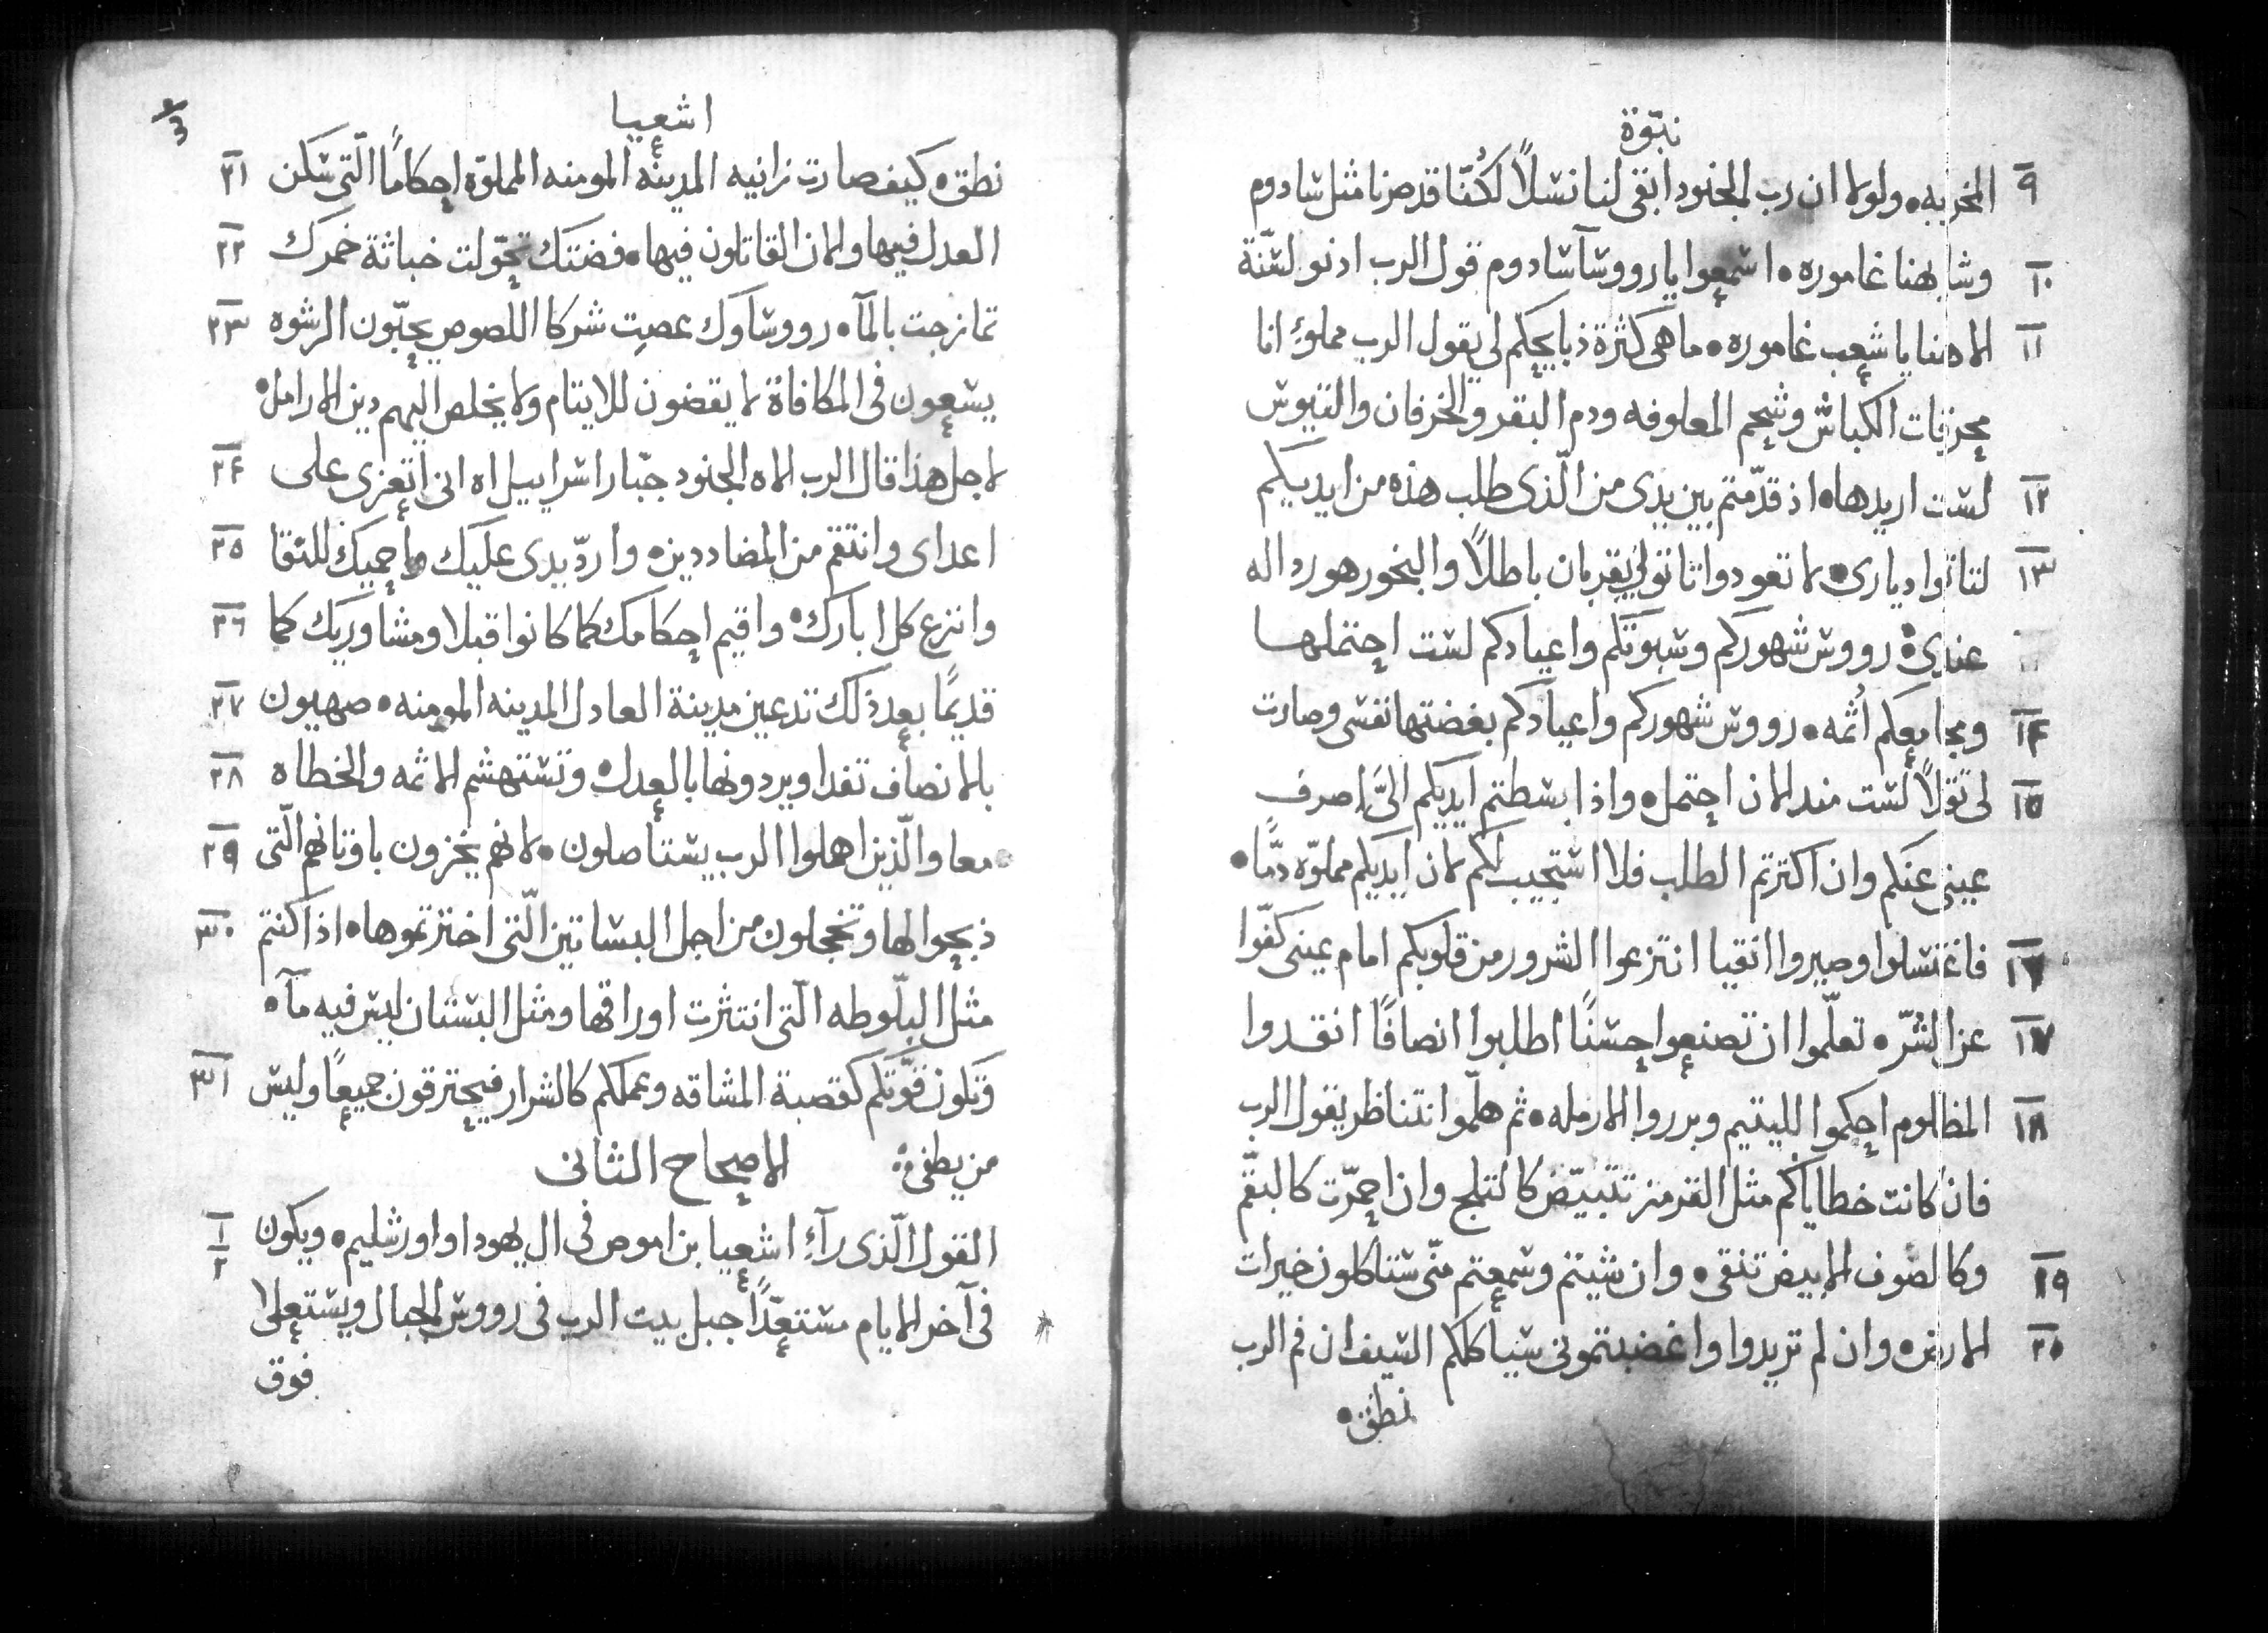 نبّوة
٩ المخربه ٠ ولولا ان رب الجنود ابقى لنا نسلاً لكُنّا قد صرنا مثل سادوم
١٠ وشابهنا غاموره ٠ اسمعوا يا رووسآ سادوم قول الرب اذنو لسنّة
١١ الاهنا يا شعب غاموره ٠ ما هى كثرة ذبايحكم لى يقول الرب مملوءٍ انا
محرقات الكباش وشحم المعلوفه ودم البقر والخرفان والتيوس
١٢ لست اريدها ٠ اذ قدّمتم بين يدى من الّذى طلب هذه من ايديكم
١٣ لتاتوا ديارى ٠ لا تعودوا تاتو لى بقربان باطلاً والبخور هو رداله
عندى ٠ رووس شهوركم وسبوتكم واعيادكم لست احتملها
١٤ ومجامعكم أثمه ٠ رووس شهوركم واعيادكم بغضتها نفسى وصارت
١٥ لى ثقلاً لست منذ الان احتمل ٠ واذا بسطتم ايديكم الىَّ اصرف
عينى عنكم وان اكترتم الطلب فلا استجيب لكم لان ايديكم مملوّه دمًا ٠
١٦ فاغتسلوا وصيروا انقيا انتزعوا الشرور من قلوبكم امام عينى كفّوا
١٧ عن الشرّ ٠ تعلّموا ان تصنعوا حسنًا اطلبوا انصافًا انقدوا
١٨ المظلوم احكموا لليتيم وبرروا الارمله ٠ ثم هلمّوا نتناظر يقول الرب
فان كانت خطاياكم مثل القرمز تتبيّض كالتلج وان احمرّت كالبقّم
١٩ وكالصوف الابيض تنقى ٠ وان شيتم وسمعتم منّى ستاكلون خيرات
٢٠ الارض ٠ وان لم تريدوا واغضبتمونى سياكلكم السيف ان فم الرب
نطق ٠
اشعيا
٢١ نطق ٠ كيف صارت زانيه المدينه المومنه المملوّة احكامًا الّتى سكن
٢٢ العدل فيها والان القاتلون فيها ٠ فضتك تحّولت خباثة خمرك
٢٣ تمازجت بالمآ ٠ رووساوك عصت شركا اللصوص يحبّون الرشوه
يسعون فى المكافاة لا يقضون للايتام ولا يخلص اليهم دين الارامل ٠
٢٤ لاجل هذا قال الرب الاه الجنود جبّار اسراييل اه انى اتعزى على
٢٥ اعداى وانتقم من المضاددين ٠ واردّ يدى عليك واحميك للنقا
٢٦ وانزع كل ابارك ٠ واقيم احكامك كما كانوا قبلا ومشاوريك كما
٢٧ قديمًا بعد ذلك تدعين مدينة العادل المدينه المومنه ٠ صهيون
٢٨ بالانصاف تفدا ويردونها بالعدل ٠ وتستهشم الاثمه والخطاه
٢٩ معا والّذين اهملوا الرب يستاصلون ٠ لانهم يخزون باوثانهم الّتى
٣٠ ذبحوا لها وتخجلون من اجل البساتين الّتى اخترتموها ٠ اذا كنتم
مثل البلّوطه الّتى انتثرت اوراقها ومثل البستان ليس فيه مآ ٠
٣١ وتكون قوّتكم كقصبة المشاقه وعملكم كالشرار فيحترقون جميعًا وليس
من يطفى ٠ الاصحاح الثانى
١ ٢ القول الّذى رآءٍ اشعيا بن اموص فى ال يهودا واورشليم ٠ ويكون
فى آخر الايام مستعّدًا جبل بيت الرب فى رووس الجبال ويستعلا
فوق